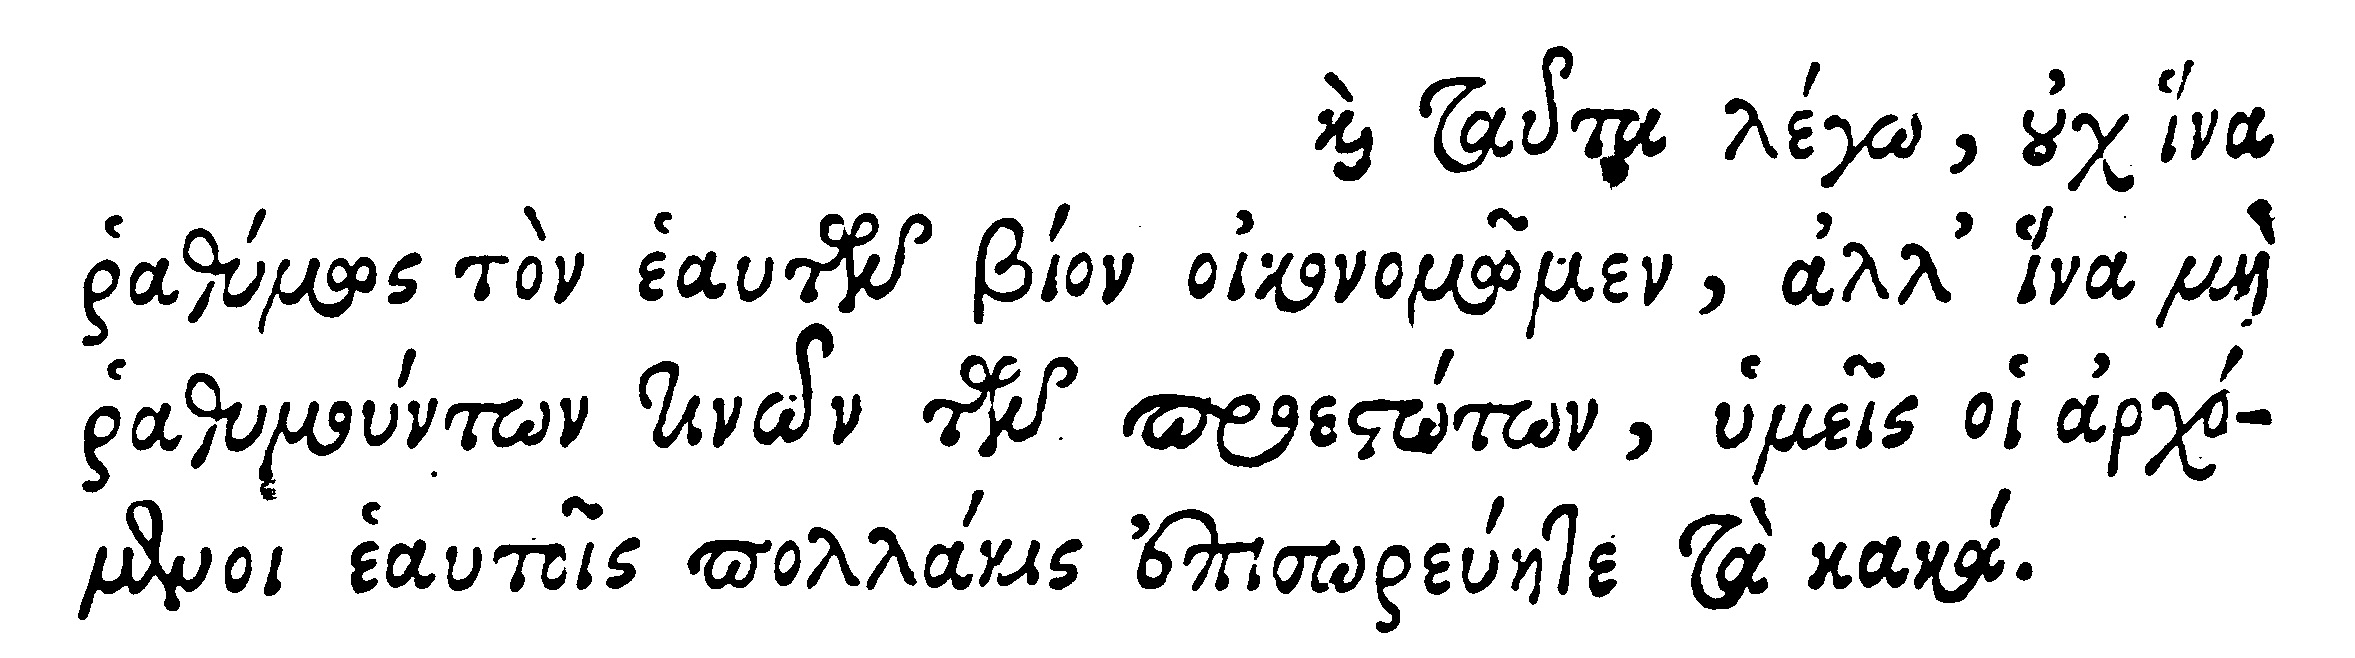 καὶ ταῦτα λέγω, οὐχ ἵνα
ῥαθύμως τὸν ἑαυτῶν βίον οἰκονομῶμεν, ἀλλ᾽ ἵνα μὴ
ῥαθυμούντων τινῶν τῶν προεστώτων, ὑμεῖς οἱ ἀρχό-
μενοι ἑαυτοῖς πολλάκις ἐπισωρεύητε τὰ κακά.